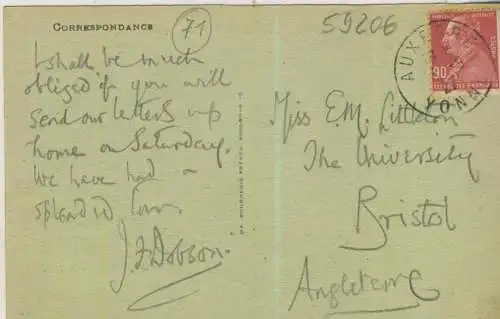 CORRESPONDANCE
71
59206
I shall be much
obliged if you will
send our letters up
home on Saturday.
We have had a
splendid tour.
J. F. Dobson.
Miss E.M. Littleton
The University
Bristol
Angleterre
AUXERRE
YONNE
90